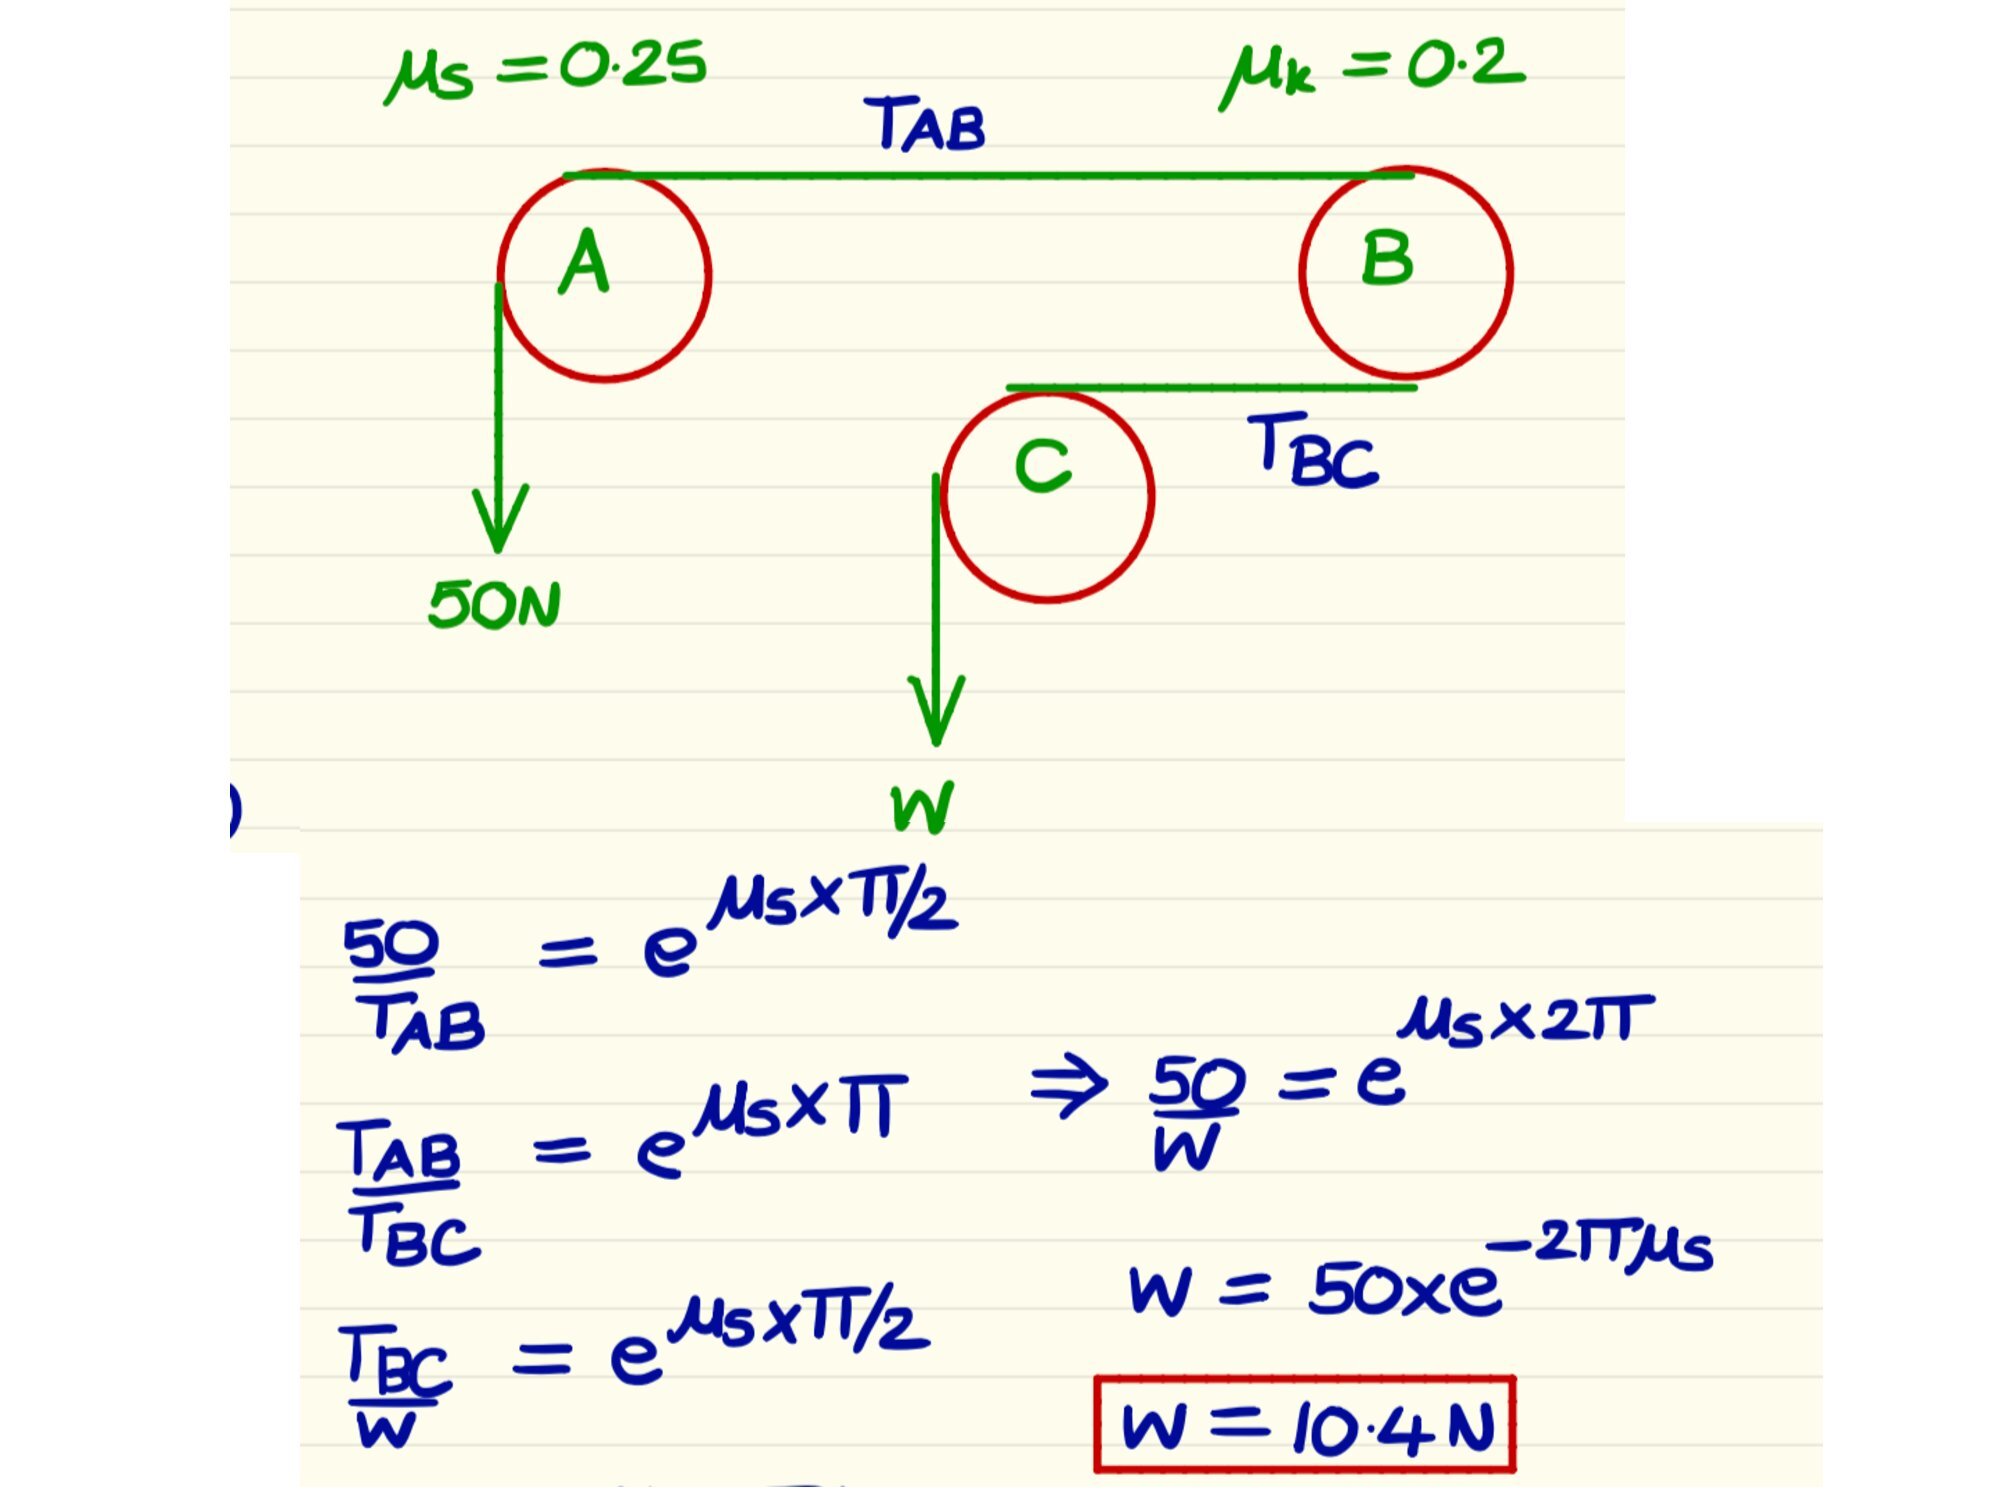 μs = 0.25
μk = 0.2
TAB
A
B
C
TBC
50N
W
)
50/TAB = e^μs×π/2
TAB/TBC = e^μs×π
TBC/W = e^μs×π/2
⇒ 50/W = e^μs×2π
W = 50×e^-2πμs
W = 10.4N